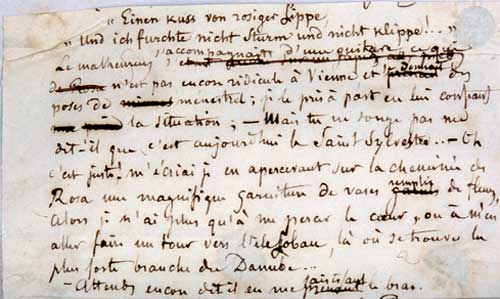 „Einen Kuss von rosiger Lippe,
„Und ich furchte nicht Sturm und nicht Klippe!.."
Le malheureux s'accompagnait d'une guitare ce qui
de Rosa n'est pas encore ridicule à Vienne et donnait des
poses de menestrel; je le pris à part en lui confiant
la situation; — Mais tu ne songe pas me
dit-il que c'est aujourd'hui la Saint Sylvestre... — Oh
c'est juste! m'écriai je en apercevant sur la cheminée de
Rosa une magnifique garniture de vases remplis de fleurs,
Alors je n'ai plus qu'à me percer le cœur, ou à m'en
aller faire un tour vers l'ile Lobau, là où se trouve la
plus forte branche du Danube...
— Attends encore dit il en me saisissant le bras.